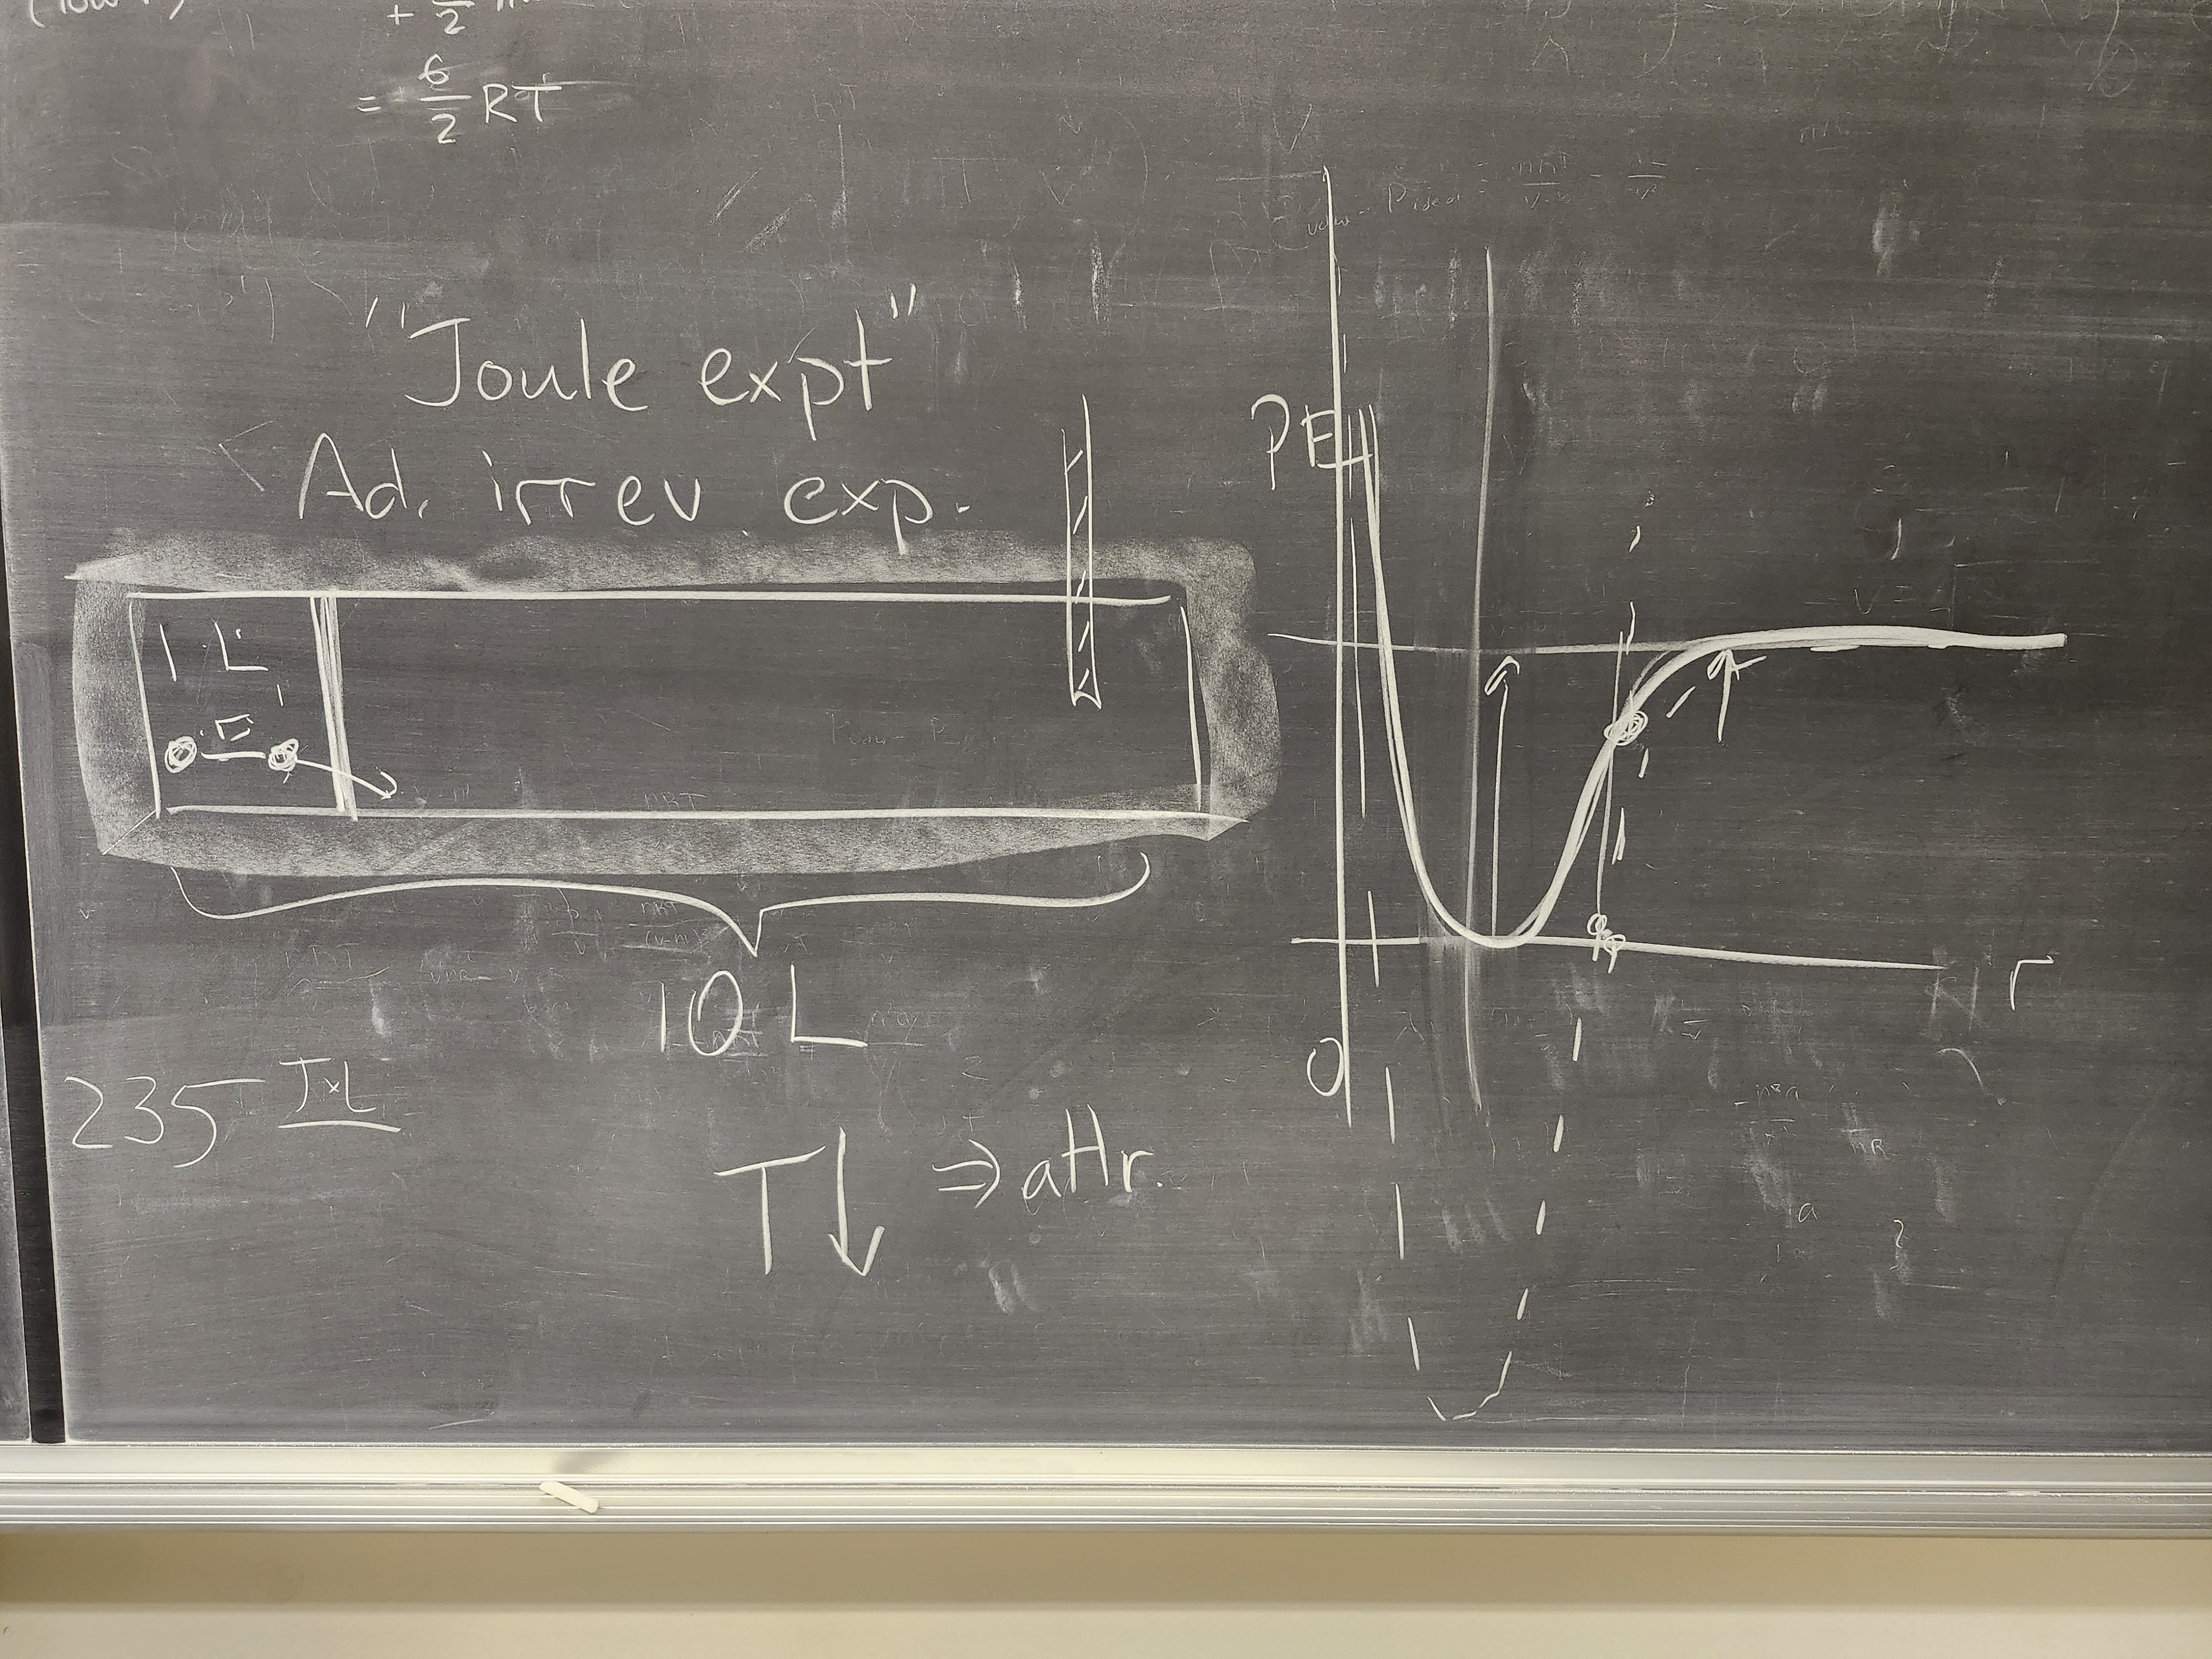 + 2
= 6/2 RT
"Joule expt"
Ad. irrev. exp.
1 L
10 L
235 J×L
T↓ ⇒ attr.
PE
r
0